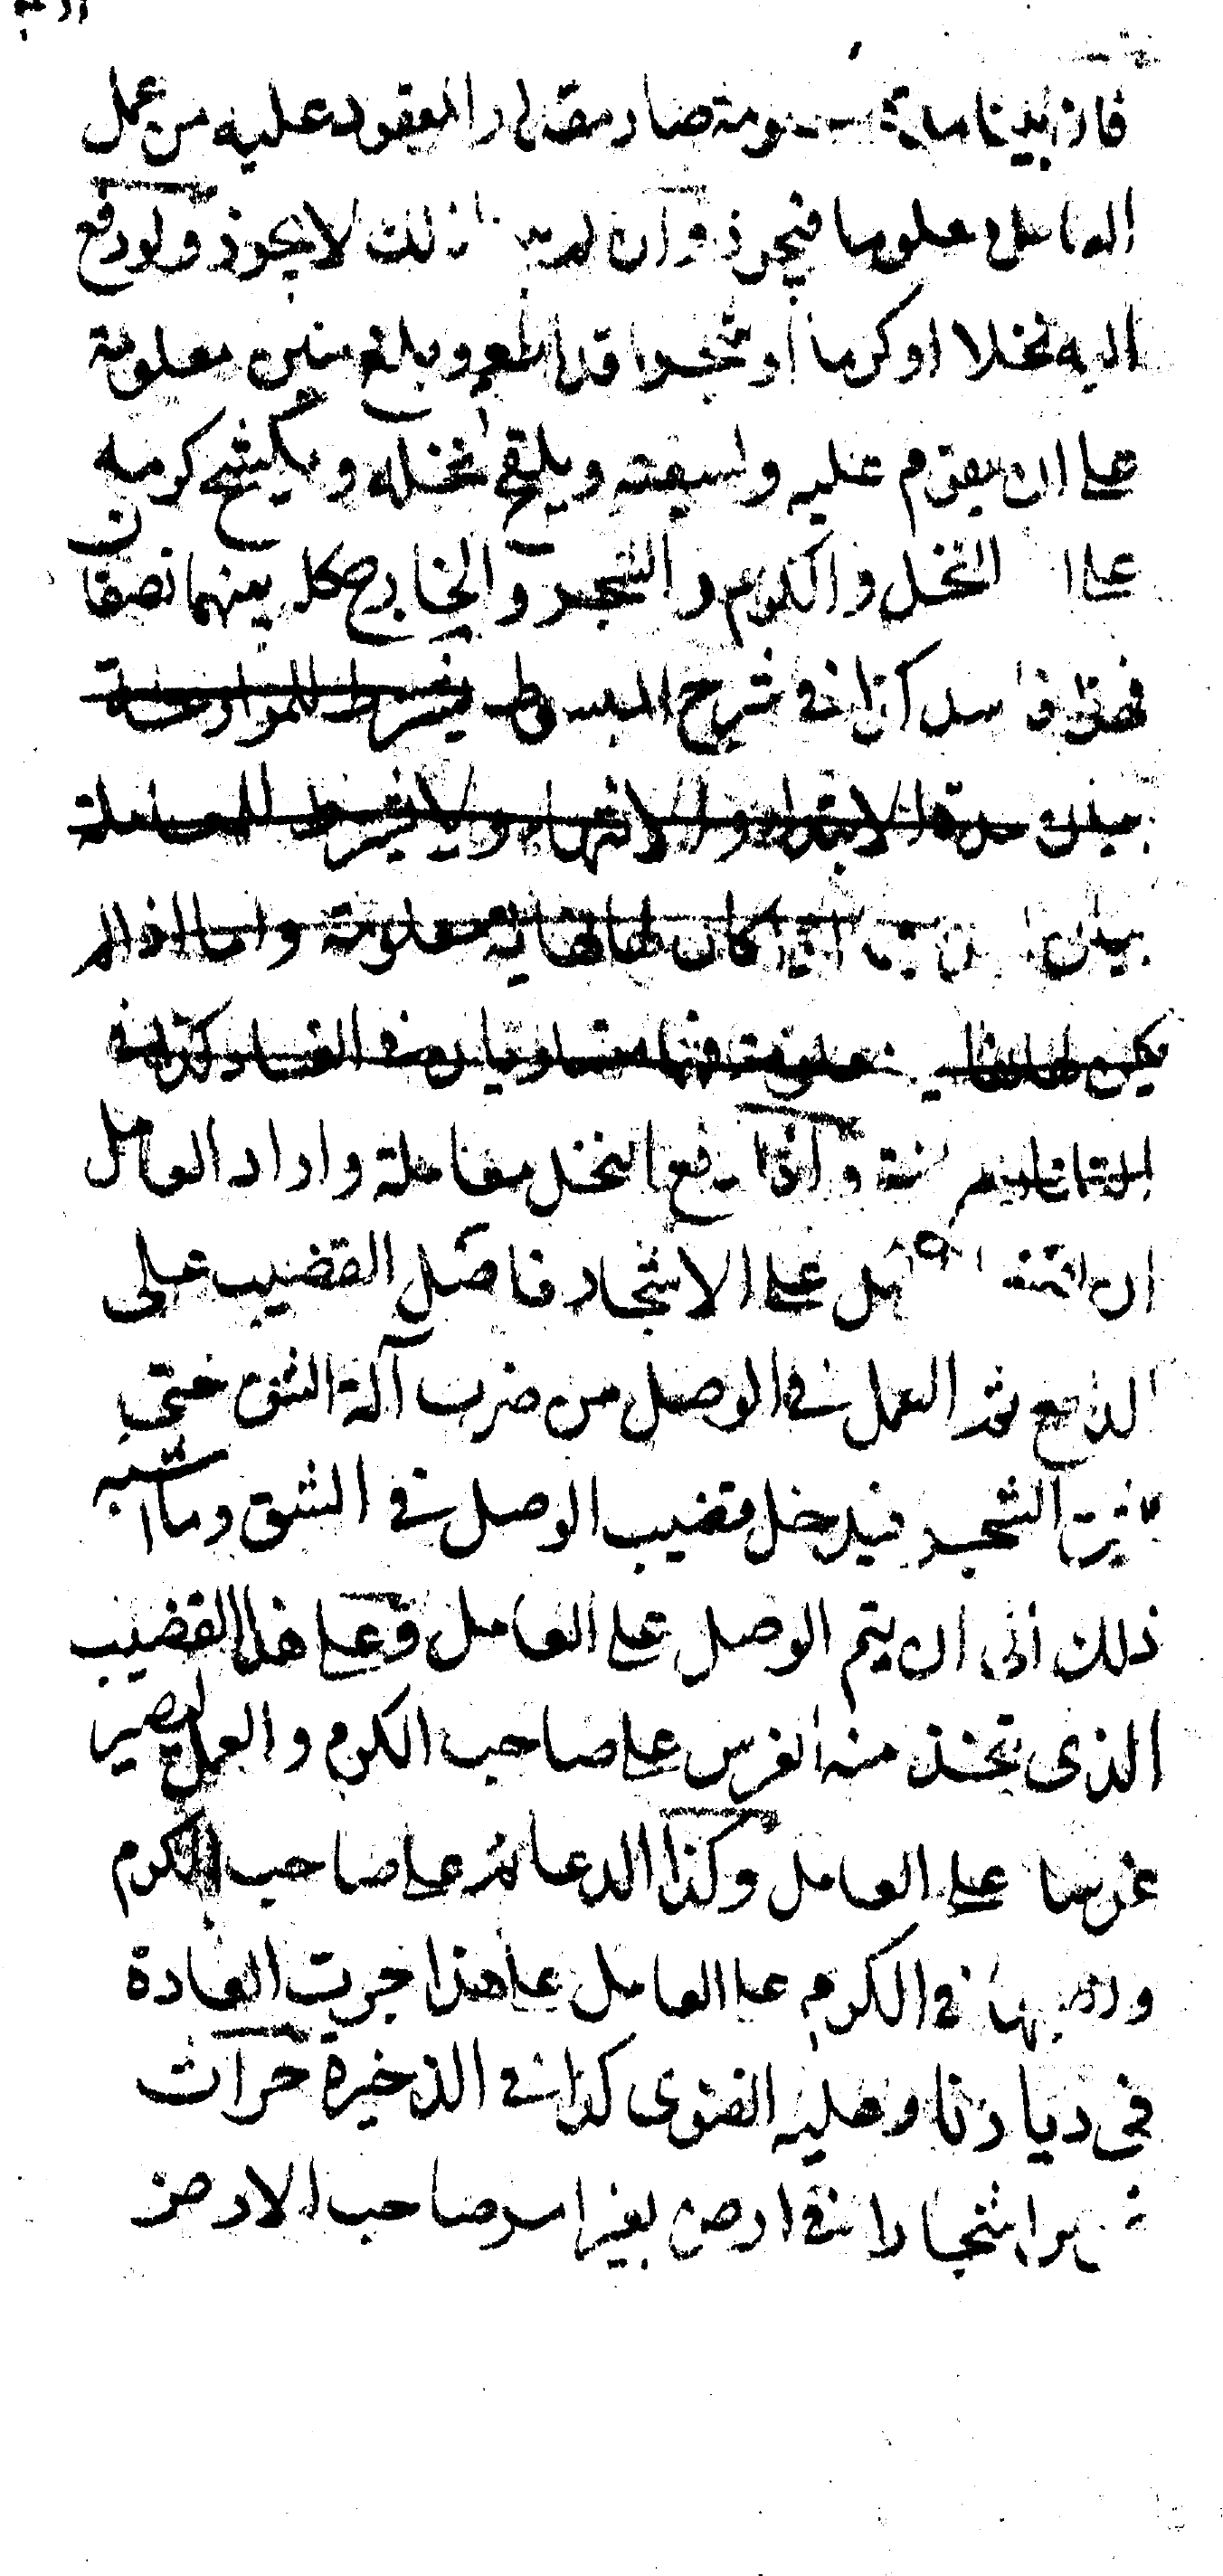 فاذا بينا مدة معلومة صار مقدار المعقود عليه من عمل
العامل معلوما فيجوز وان لم يبينا ذلك لا يجوز ولو دفع
اليه نخلا او كرما او شجرا قد اطعم وبلغ سنين معلومة
على ان يقوم عليه ويسقيه ويلقح نخله ويكسح كرمه
على ان النخل والكرم والشجر والخارج كله بينهما نصفان
فهذا فاسد كذا في شرح المبسوط يشترط للمزارعة
بيان مدة الابتداء والانتهاء ولا يشترط للمعاملة
بيان اذا كان لها نهاية معلومة واما اذا لم
يكن لها نهاية معلومة فهما متساويان في الفساد كذا في
التاتارخانية واذا دفع النخل معاملة واراد العامل
ان على الاشجار فاصل القضيب على
الدافع ثم العمل في الوصل من ضرب آلة الشق حتى
الشجر فيدخل قضيب الوصل في الشق وما اشبه
ذلك الى ان يتم الوصل على العامل وعلى هذا القضيب
الذي تخذ منه الغرس على صاحب الكرم والعمل ليصير
غرسا على العامل وكذا الدعائم على صاحب الكرم
في الكرم على العامل على هذا جرت العادة
في ديارنا وعليه الفتوى كذا في الذخيرة حراث
اشجارا في ارض بغير امر صاحب الارض